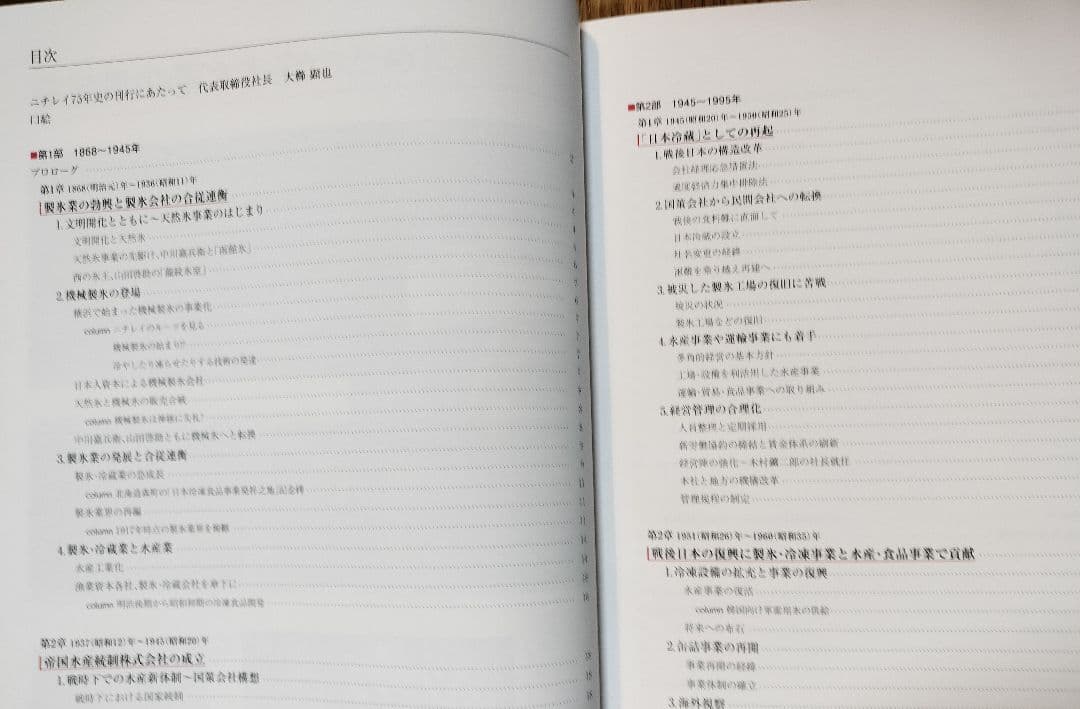 目次
ニチレイ75年史の刊行にあたって 代表取締役社長 大櫛 顕也
口絵
■第1部 1868～1945年
プロローグ 2
第1章 1868(明治元)年～1936(昭和11)年
製氷業の勃興と製氷会社の合従連衡
1.文明開化とともに～天然氷事業のはじまり
文明開化と天然氷
天然氷事業の先駆け、中川嘉兵衛と「函館氷」
西の氷王、山田啓助の「龍紋氷室」
2.機械製氷の登場
横浜で始まった機械製氷の事業化
column ニチレイのルーツを見る
機械製氷の始まり!?
冷やしたり凍らせたりする技術の発達
日本人資本による機械製氷会社
天然氷と機械氷の販売合戦
column 機械製氷は神様に失礼?
中川嘉兵衛、山田啓助ともに機械氷へと転換
3.製氷業の発展と合従連衡
製氷・冷蔵業の急成長
column 北海道森町の「日本冷凍食品事業発祥之地」記念碑
製氷業界の再編
column 1917年時点の製氷業界を俯瞰
4.製氷・冷蔵業と水産業
水産工業化
漁業資本各社、製氷・冷蔵会社を傘下に
column 明治後期から昭和初期の冷凍食品開発
第2章 1937(昭和12)年～1945(昭和20)年
帝国水産統制株式会社の成立
1.戦時下での水産新体制～国策会社構想
戦時下における国家統制
■第2部 1945～1995年
第1章 1945(昭和20)年～1950(昭和25)年
「日本冷蔵」としての再起
1.戦後日本の構造改革
会社経理応急措置法
過度経済力集中排除法
2.国策会社から民間会社への転換
戦後の食料難に直面して
日本冷蔵の設立
社名変更の経緯
困難を乗り越え再建へ
3.被災した製氷工場の復旧に苦戦
被災の状況
製氷工場などの復旧
4.水産事業や運輸事業にも着手
多角的経営の基本方針
工場・設備を利活用した水産事業
運輸・貿易・食品事業への取り組み
5.経営管理の合理化
人員整理と定期採用
新労働協約の締結と賃金体系の刷新
経営陣の強化～木村鑛二郎の社長就任
本社と地方の機構改革
管理規程の制定
第2章 1951(昭和26)年～1960(昭和35)年
戦後日本の復興に製氷・冷凍事業と水産・食品事業で貢献
1.冷凍設備の拡充と事業の復興
水産事業の復活
column 韓国向け軍需用氷の供給
将来への布石
2.缶詰事業の再開
事業再開の経緯
事業体制の確立
3.海外視察